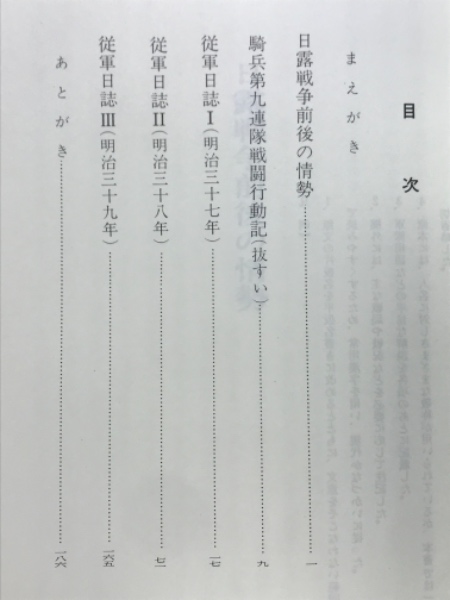 目次
まえがき
日露戦争前後の情勢……一
騎兵第九連隊戦闘行動記(抜すい)……九
従軍日誌Ⅰ(明治三十七年)……一七
従軍日誌Ⅱ(明治三十八年)……七一
従軍日誌Ⅲ(明治三十九年)……一六五
あとがき……一八六